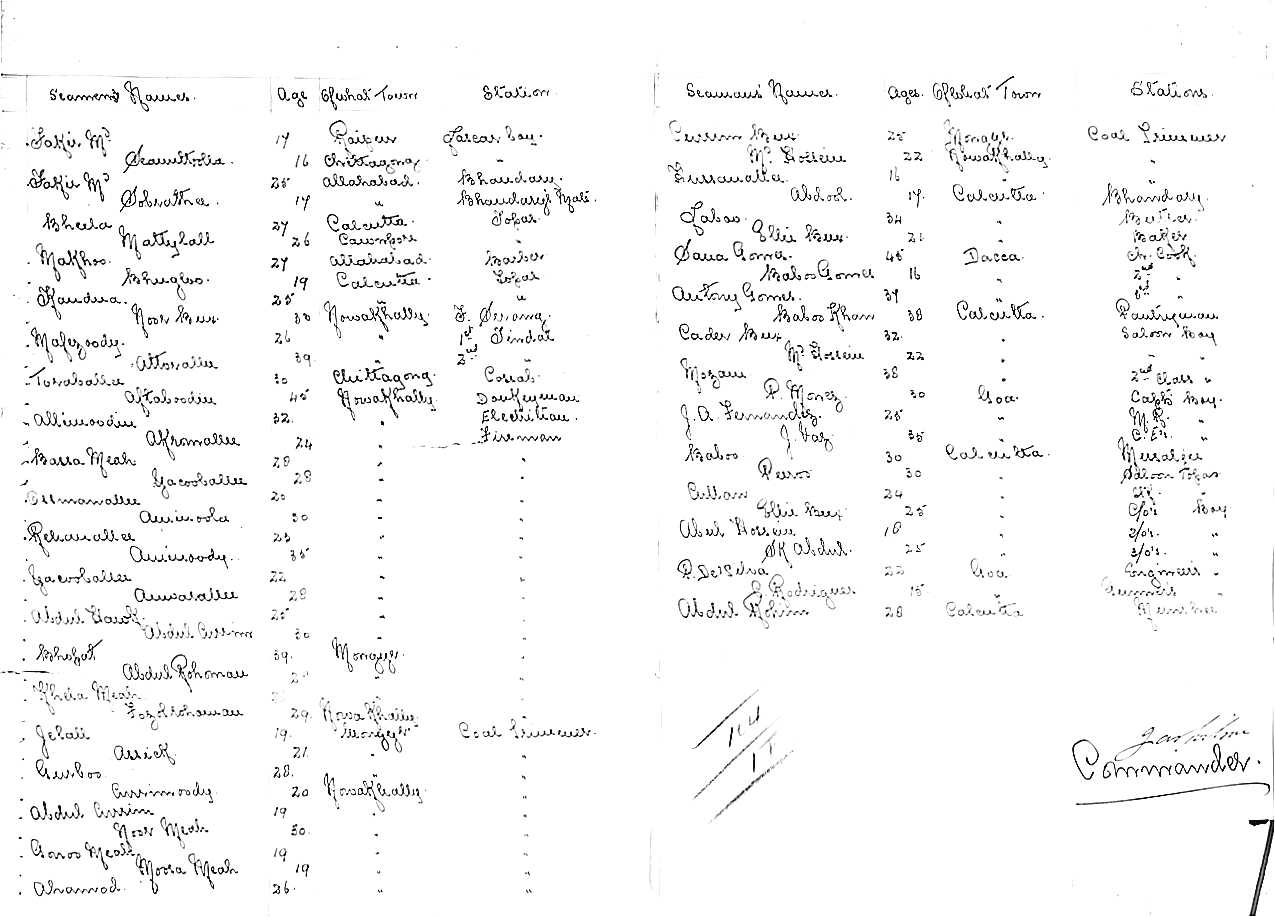 Seamen's Names. Age Of what Town Station
Fakir Md 17 Raipur Lascar boy.
16 Chittagong "
Fakir Md 25 Allahabad. Bhandary.
17 " Bhandary's Mate.
Bheela 27 Calcutta. Topas.
Mattylall 26 Cawnpore "
Makhoo. 27 Allahabad. Barber
Bhugloo. 19 Calcutta. Topas
25 " "
Noor Bux. 30 Nowakhally. Serang.
Mafizoody. 26 " 1st Tindal
Attorallee 39. " 2nd "
Torraballee 30 Chittagong. Cossab.
Aftaboodin 45 Nowakhally. Donkeyman
Allimoodin 32. " Electrition.
Akromallee 24 " Fireman
Bassa Meah 28 " "
Yacooballee 28 " "
Osmanallee 20 " "
Aminoola 30 " "
Rehanallee 23 " "
Aminoody. 35 " "
Yacooballee 22 " "
Anwarallee 28 " "
Abdul 25 " "
Abdul Currim 30 " "
39. Monguyr. "
Abdul Rohoman " "
Meah
29. Nowakhally "
Jelall 19. Monghyr Coal Trimmer.
Assick. 21 " "
Gurboo 28. " "
Currimoody 20 Nowakhally. "
Abdul Currim 19 " "
Noor Meah 30. " "
Gonoo Meah 19 " "
Moosa Meah 19 " "
Ahamad. 26. " "
Seamans' Names. Ages. Of what Town Stations.
Currim Bux 25 Monguyr. Coal Trimmer
Md Hossein 22 Nowakhally. "
16 " "
Abdool 17. Calcutta Bhandary.
34 " Butler.
Ellie Bux. 21 " Baker
Gomes. 45 Dacca. Ch. Cook.
Baboo Gomes 16 " 2nd "
Antony Gomes. 37 " 3rd "
Baboo Khan 38 Calcutta. Pantryman
Cader Bux 32. " Saloon Boy
Md Hossein 22 " " "
Mozam 38 " 2nd Class "
P. Monez 30 Goa. Capt's Boy.
J. A. Fernandez 25 " "
J. Vaz 35 " C.E's. "
Baboo 30 Calcutta. Mussalgee
Peroo 30 " Saloon Topas
24 " "
Ellie Bux 25 " C/o's Boy
Abul Hossein 18 " 2/o's. "
SK Abdul. 25 " 3/o's. "
P. De Silva 22 Goa. Engineers "
Rodriguez 15 " Gunner's "
Abdul Rohim 28 Calcutta
Commander.